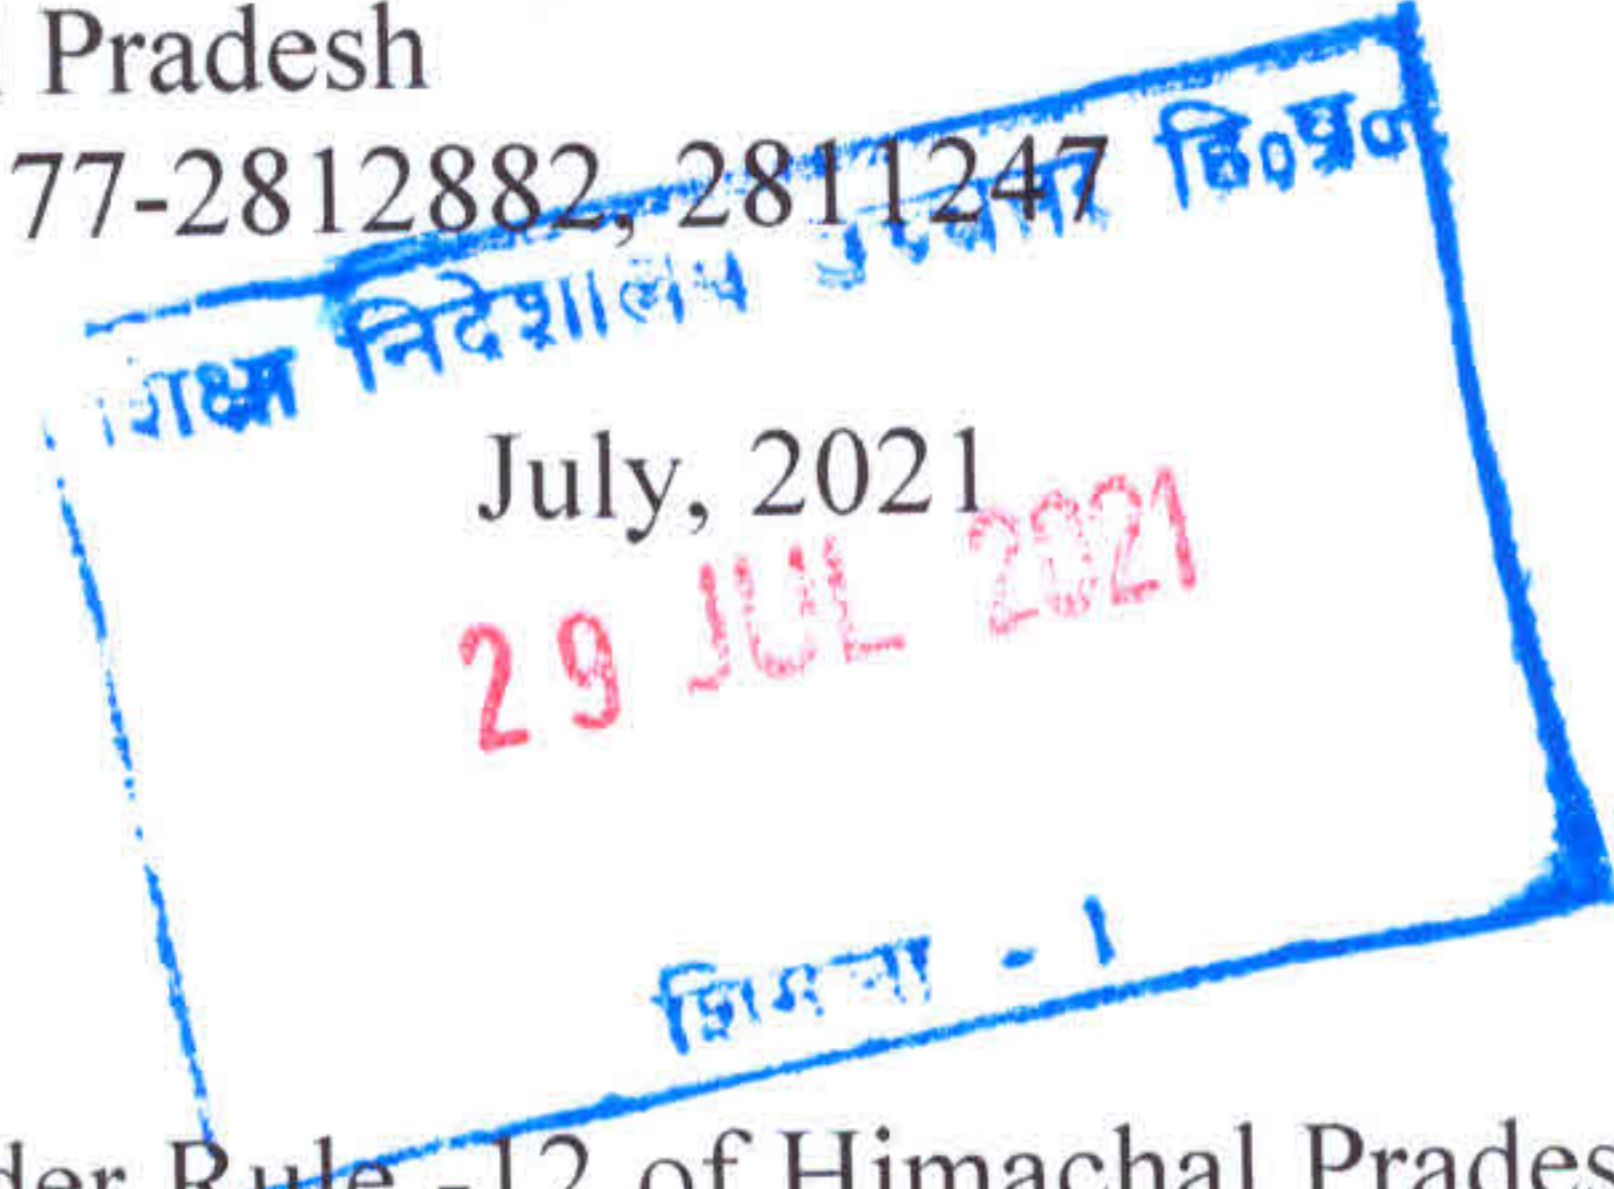 Pradesh
77-2812882, 2811247
शिक्षा निदेशालय उच्चतर हि०प्र०
July, 2021
29 JUL 2021
शिमला - 1
der Rule -12 of Himachal Prades